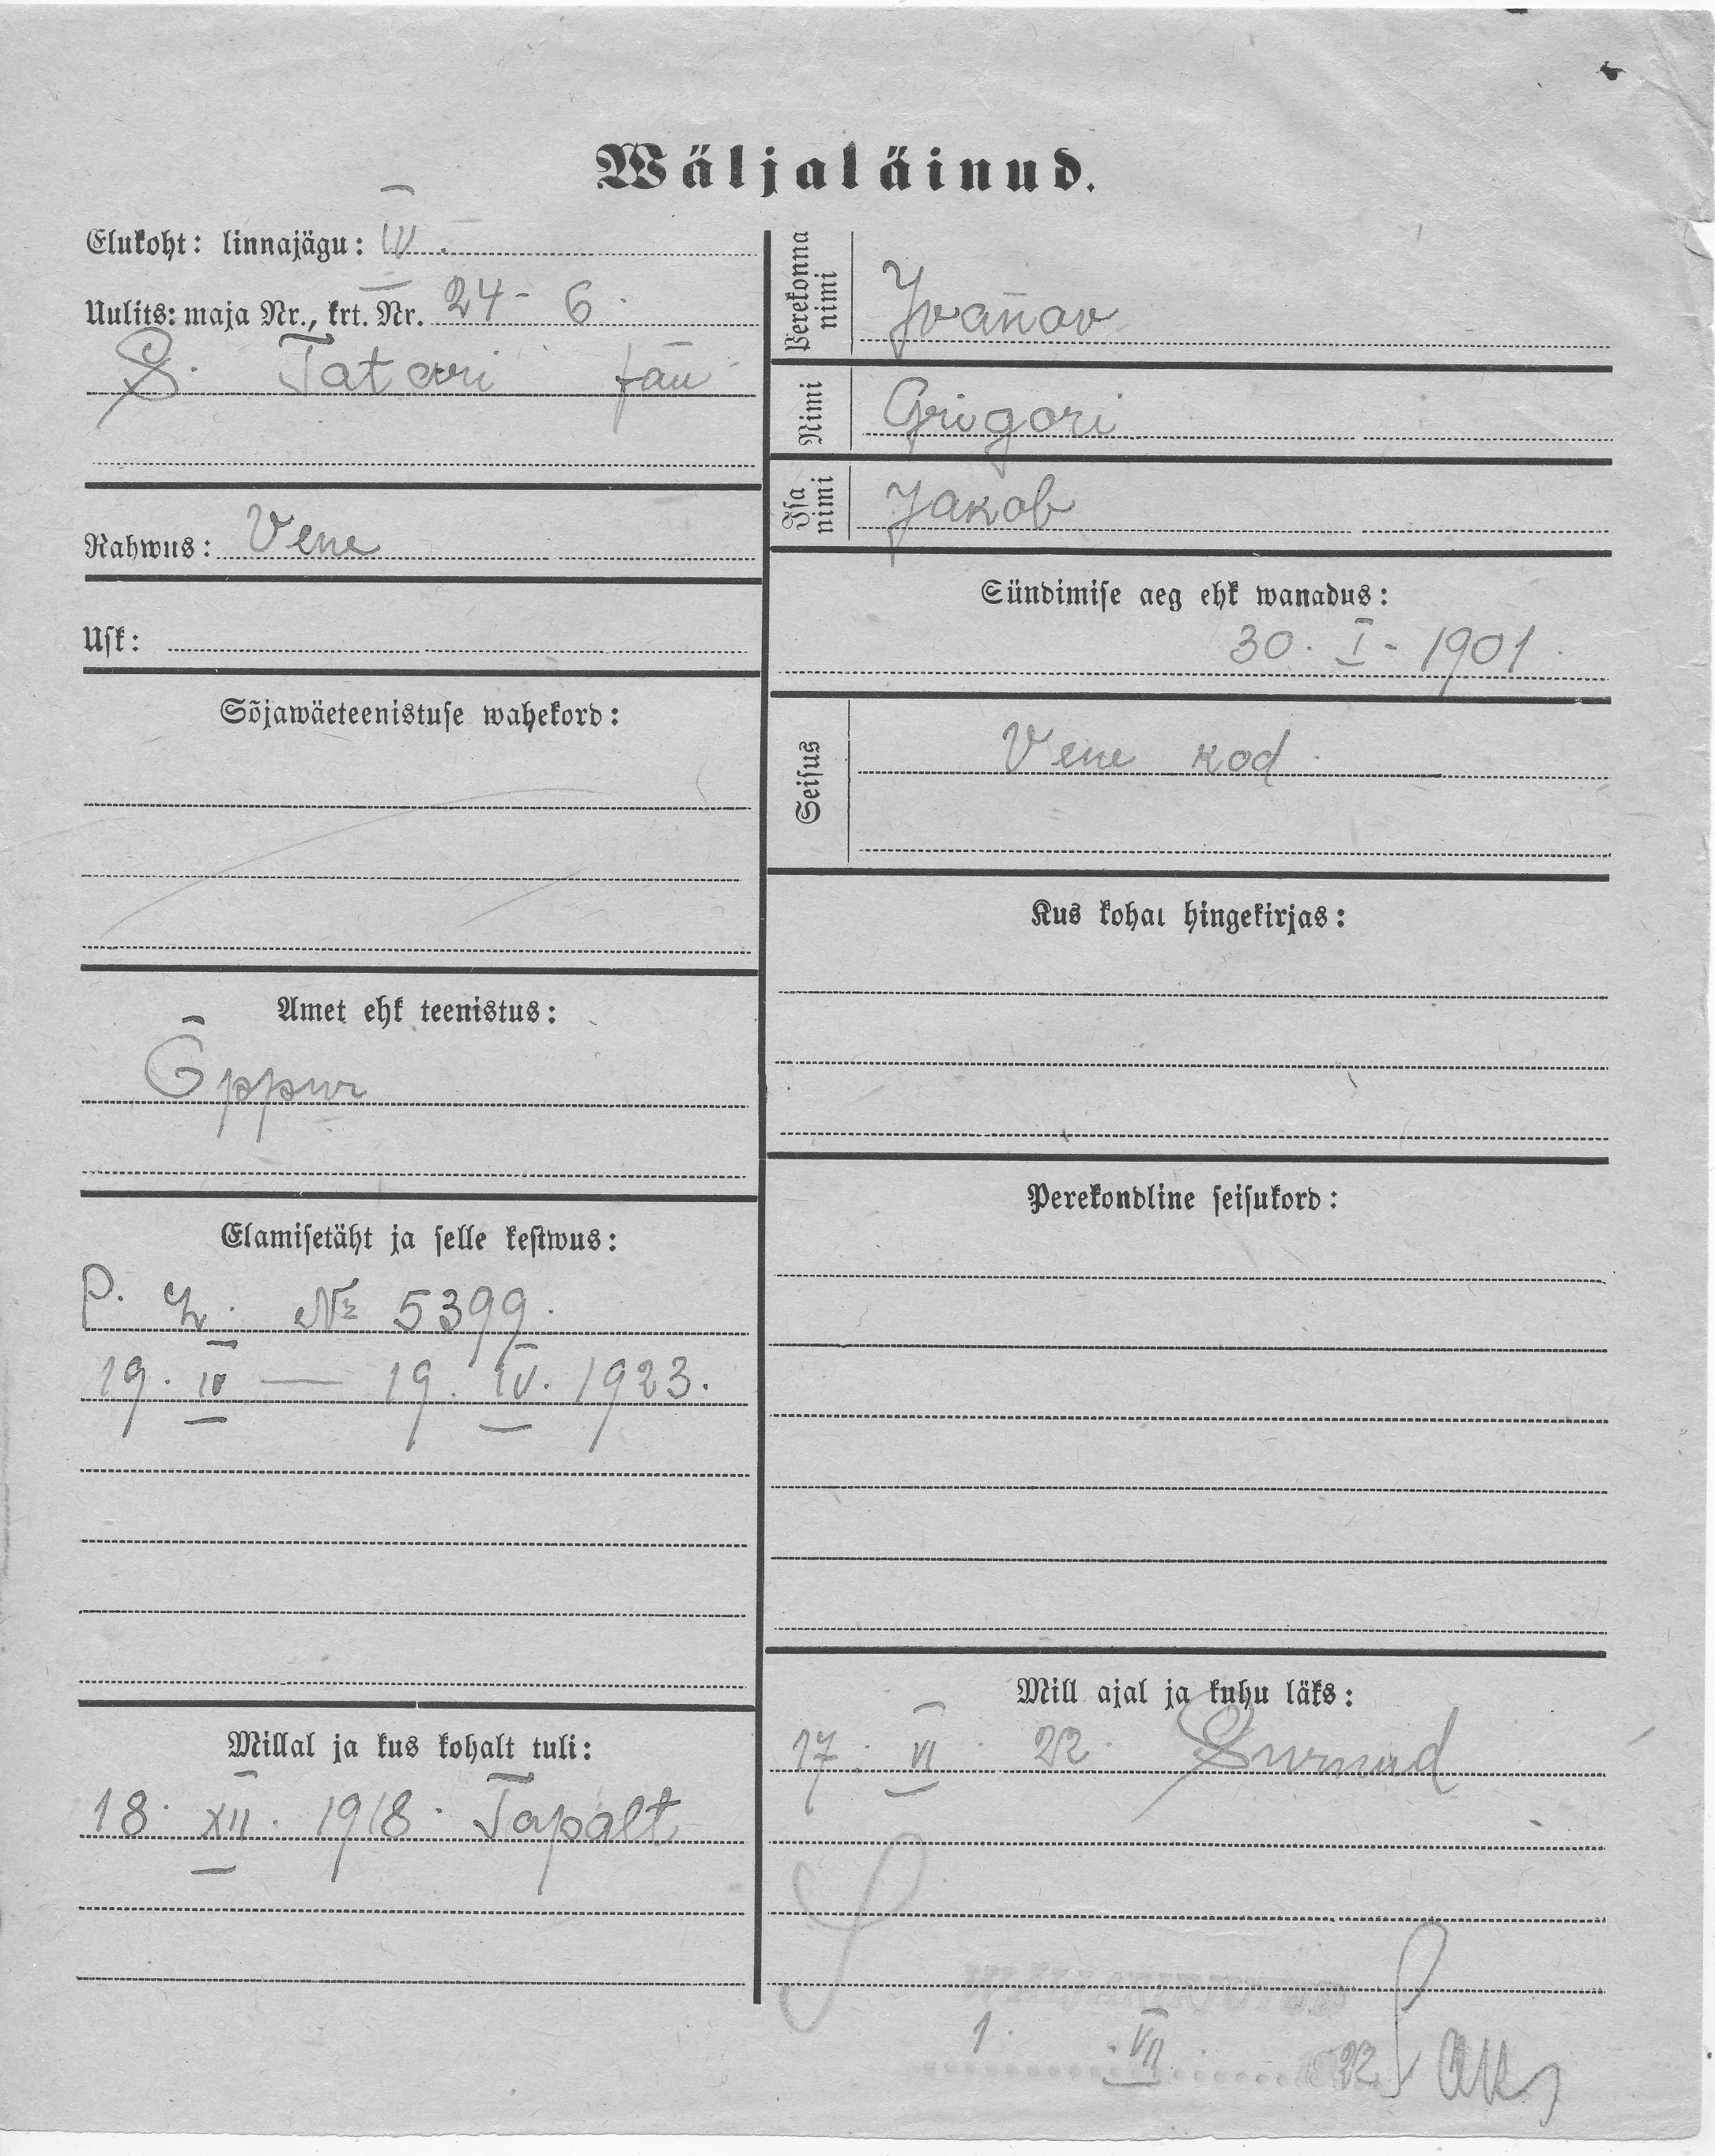 Wäljaläinud.
Elukoht: linnajägu: IV.
Uulits: maja Nr., krt. Nr. 24 - 6.
S. Tatari tän
Rahwus: Vene
Usk:
Sõjawäeteenistuse wahekord:
Amet ehk teenistus:
Õppur
Elamisetäht ja selle kestwus:
P. L. № 5399.
19. IV — 19. IV. 1923.
Millal ja kus kohalt tuli:
18. XII. 1918. Tapalt
Perekonna nimi
Jvanov
Nimi
Grigori
Isa nimi
Jakob
Sündimise aeg ehk wanadus:
30. I - 1901.
Seisus
Vene kod.
Kus kohal hingekirjas:
Perekondline seisukord:
Mill ajal ja kuhu läks:
17. VI. 22. Surnud
1. VII. 22